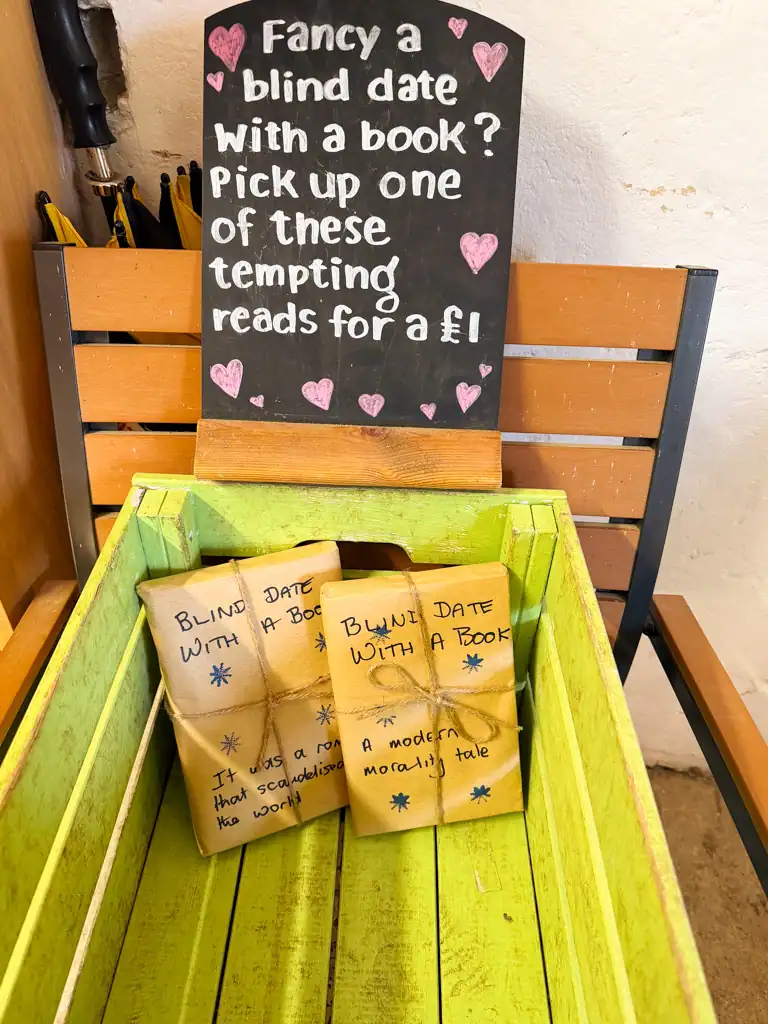 Fancy a
blind date
with a book?
Pick up one
of these
tempting
reads for a £1
BLIND DATE
WITH A BOO
It was a
that scandelised
the world
BLIND DATE
WITH A BOOK
A modern
morality tale